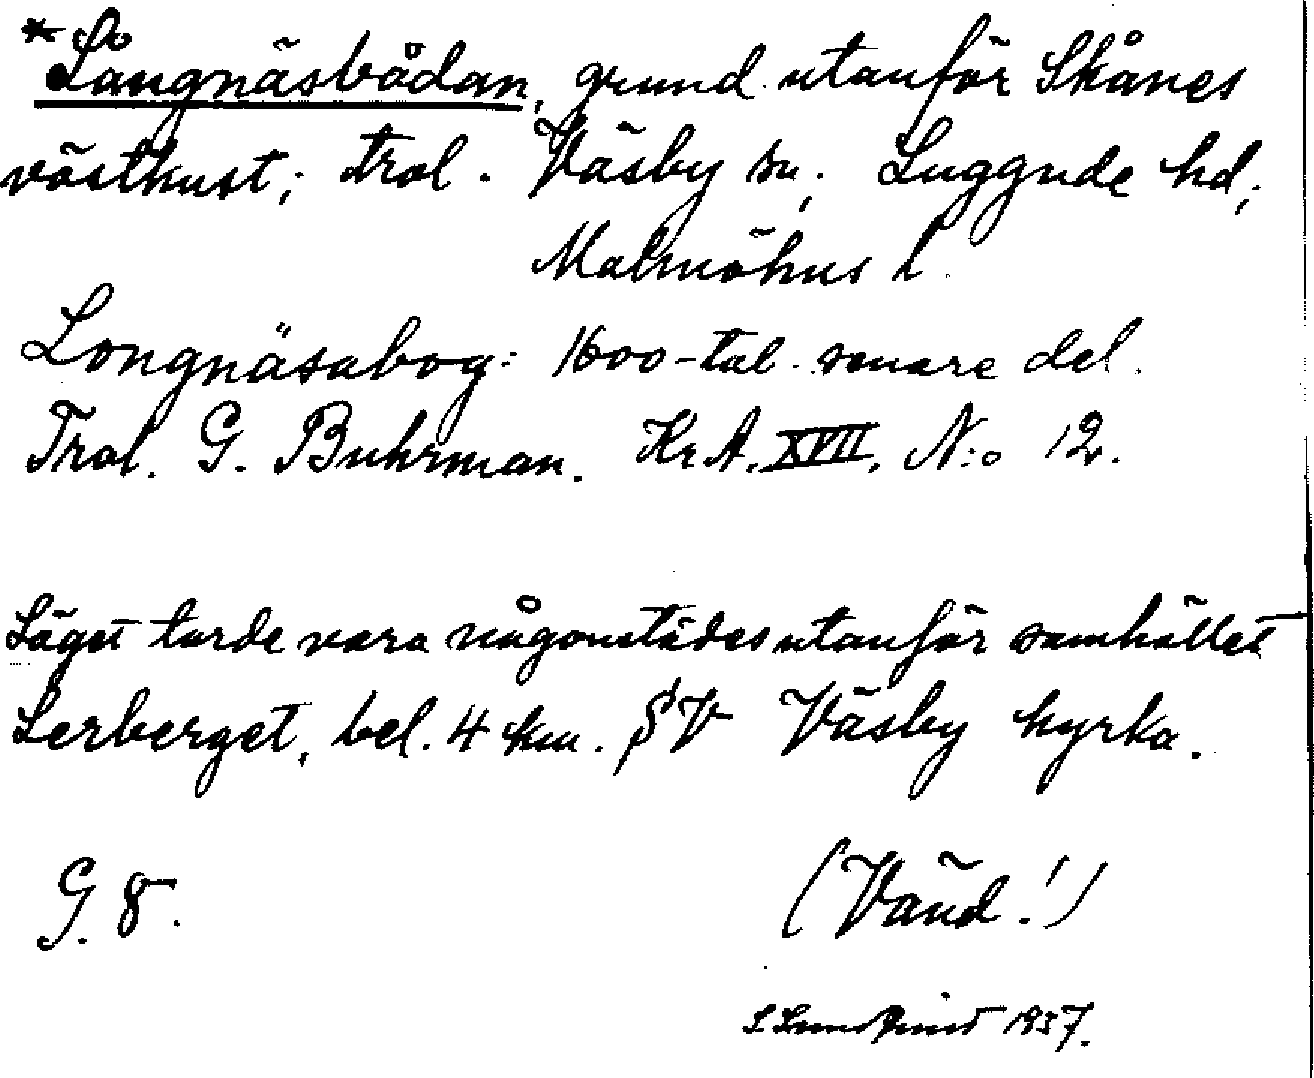 *Långnäsbådan, grund utanför Skånes
västkust; trol. Väsby sn, Luggude hd,
Malmöhus l.
Longnäsabog: 1600-tal. senare del.
Trol. G. Buhrman. Kr.A. XVII, N:o 12.
Läget torde vara någonstädes utanför samhället
Lerberget, bel. 4 km. SV Väsby kyrka.
G. 8.
(Vänd!)
1937.